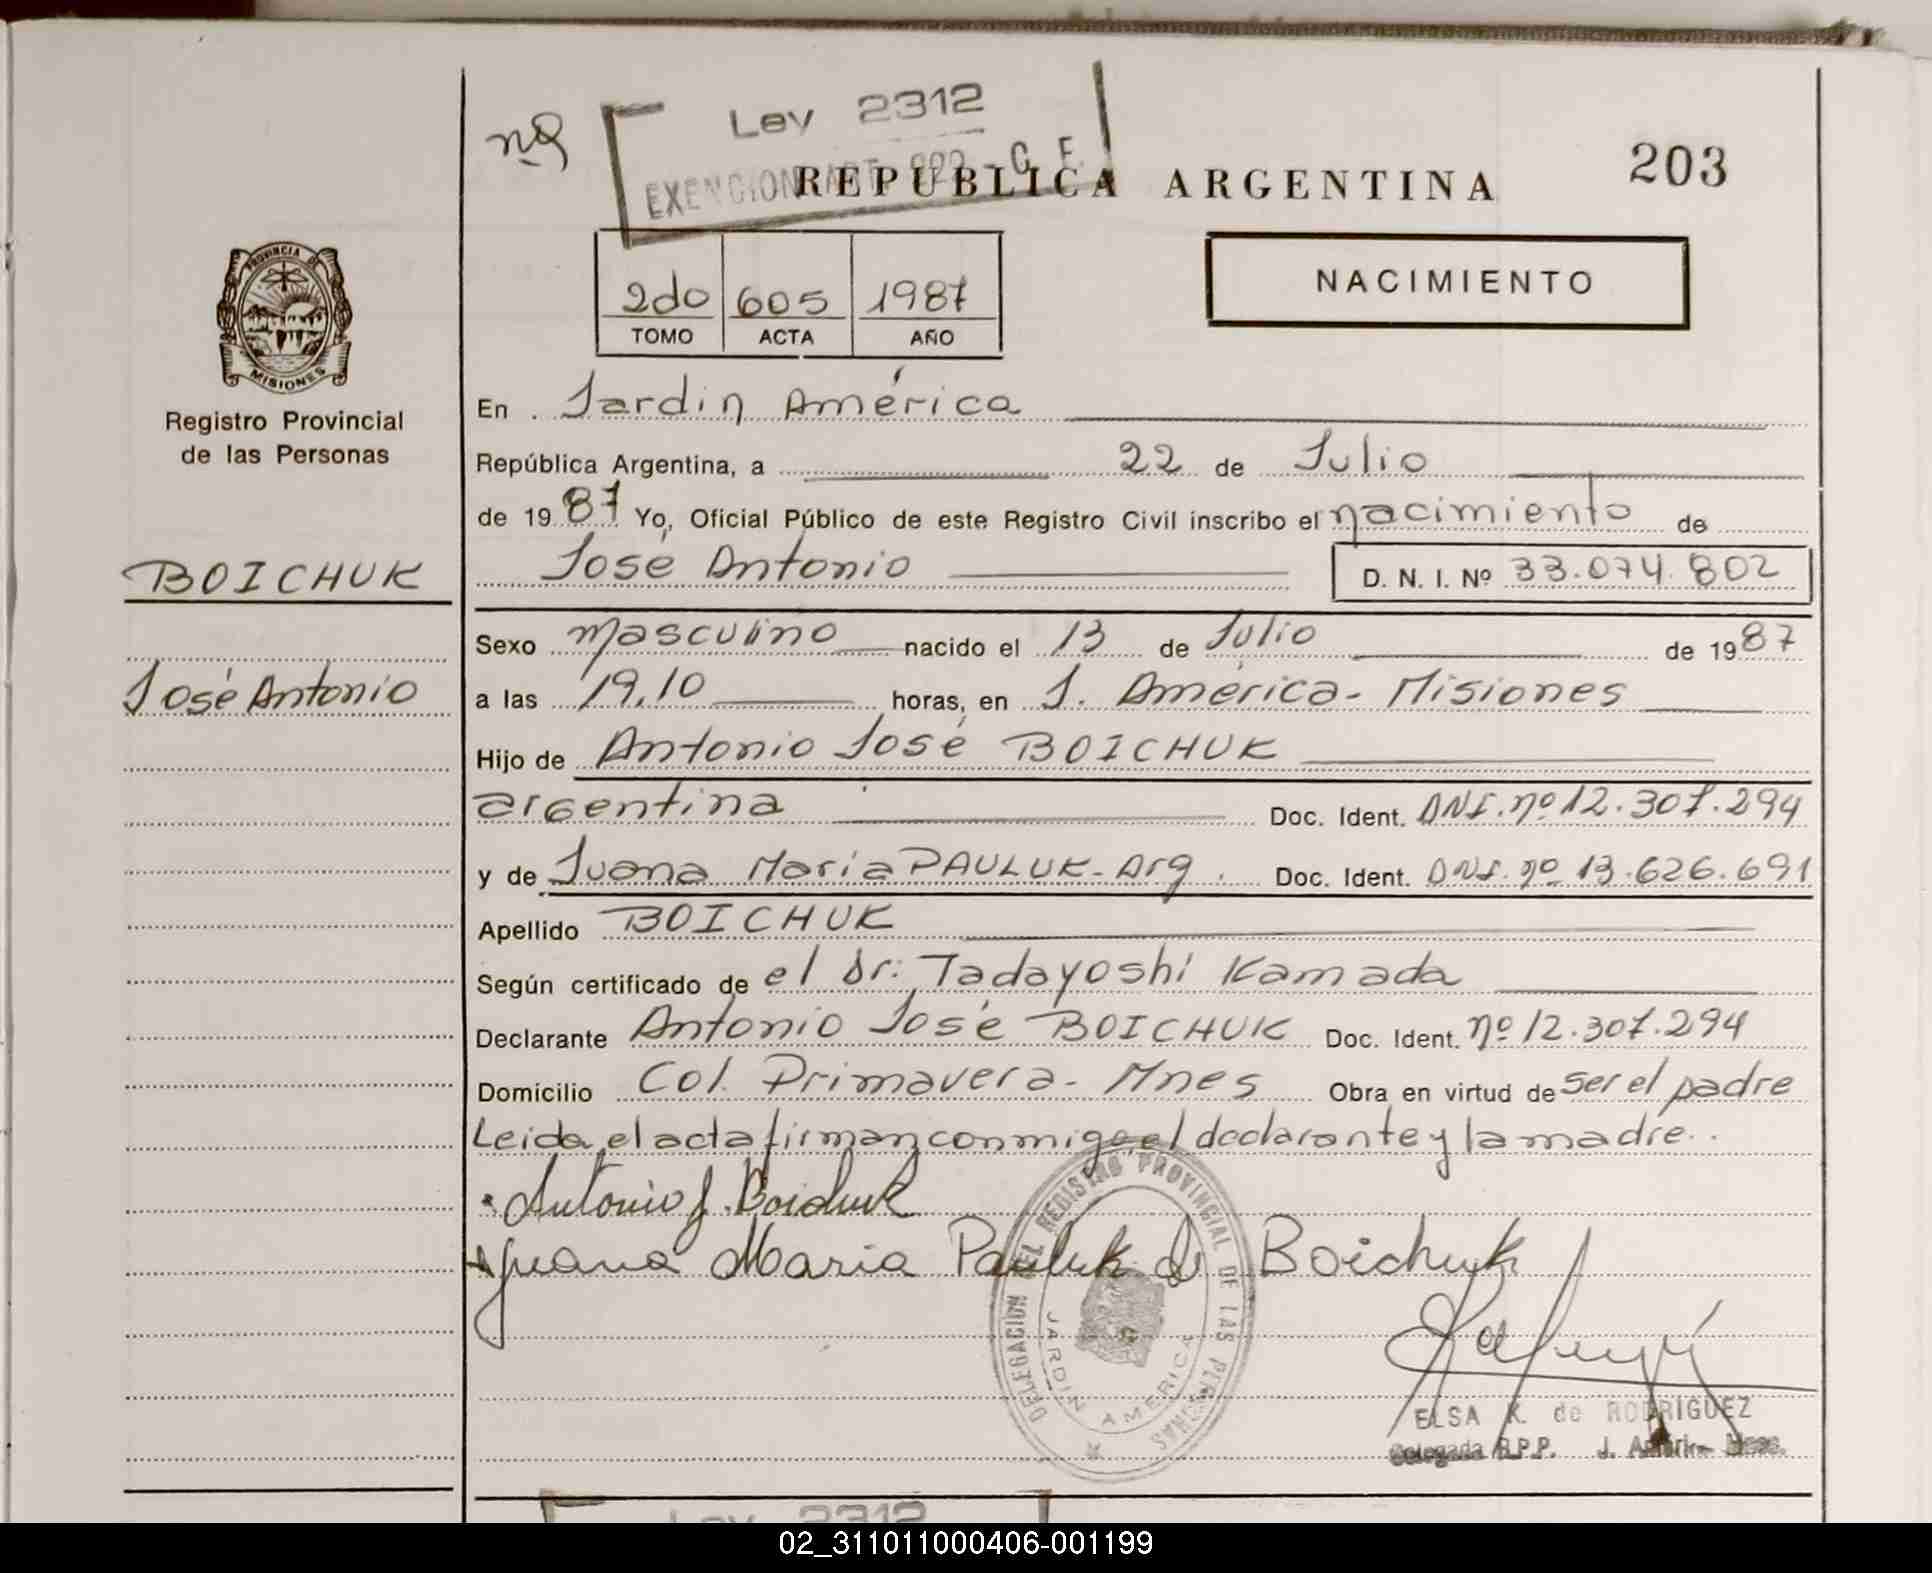 nº
Ley 2312
EXENCION ART 992 - C. F.
REPUBLICA ARGENTINA
203
PROVINCIA DE
MISIONES
Registro Provincial
de las Personas
2do 605 1987
TOMO ACTA AÑO
NACIMIENTO
En Jardin América
República Argentina, a 22 de Julio
de 1987 Yo, Oficial Público de este Registro Civil inscribo el nacimiento de
BOICHUK
José Antonio D. N. I. Nº 33.074.802
Sexo masculino nacido el 13 de Julio de 1987
José Antonio
a las 19,10 horas, en J. América - Misiones
Hijo de Antonio José BOICHUK
argentina Doc. Ident. DNI. nº 12.307.294
y de Juana María PAULUK - Arg. Doc. Ident. DNI. nº 13.626.691
Apellido BOICHUK
Según certificado de el Dr: Tadayoshi Kamada
Declarante Antonio José BOICHUK Doc. Ident. nº 12.307.294
Domicilio Col. Primavera - Mnes Obra en virtud de ser el padre
Leida el acta firman conmigo el declarante y la madre..
Antonio J. Boichuk
Juana Maria Pauluk de Boichuk
DELEGACION DEL REGISTRO PROVINCIAL DE LAS PERSONAS
JARDIN AMERICA
ELSA K. de RODRIGUEZ
Delegada R.P.P. J. América
Ley 2312
02_311011000406-001199